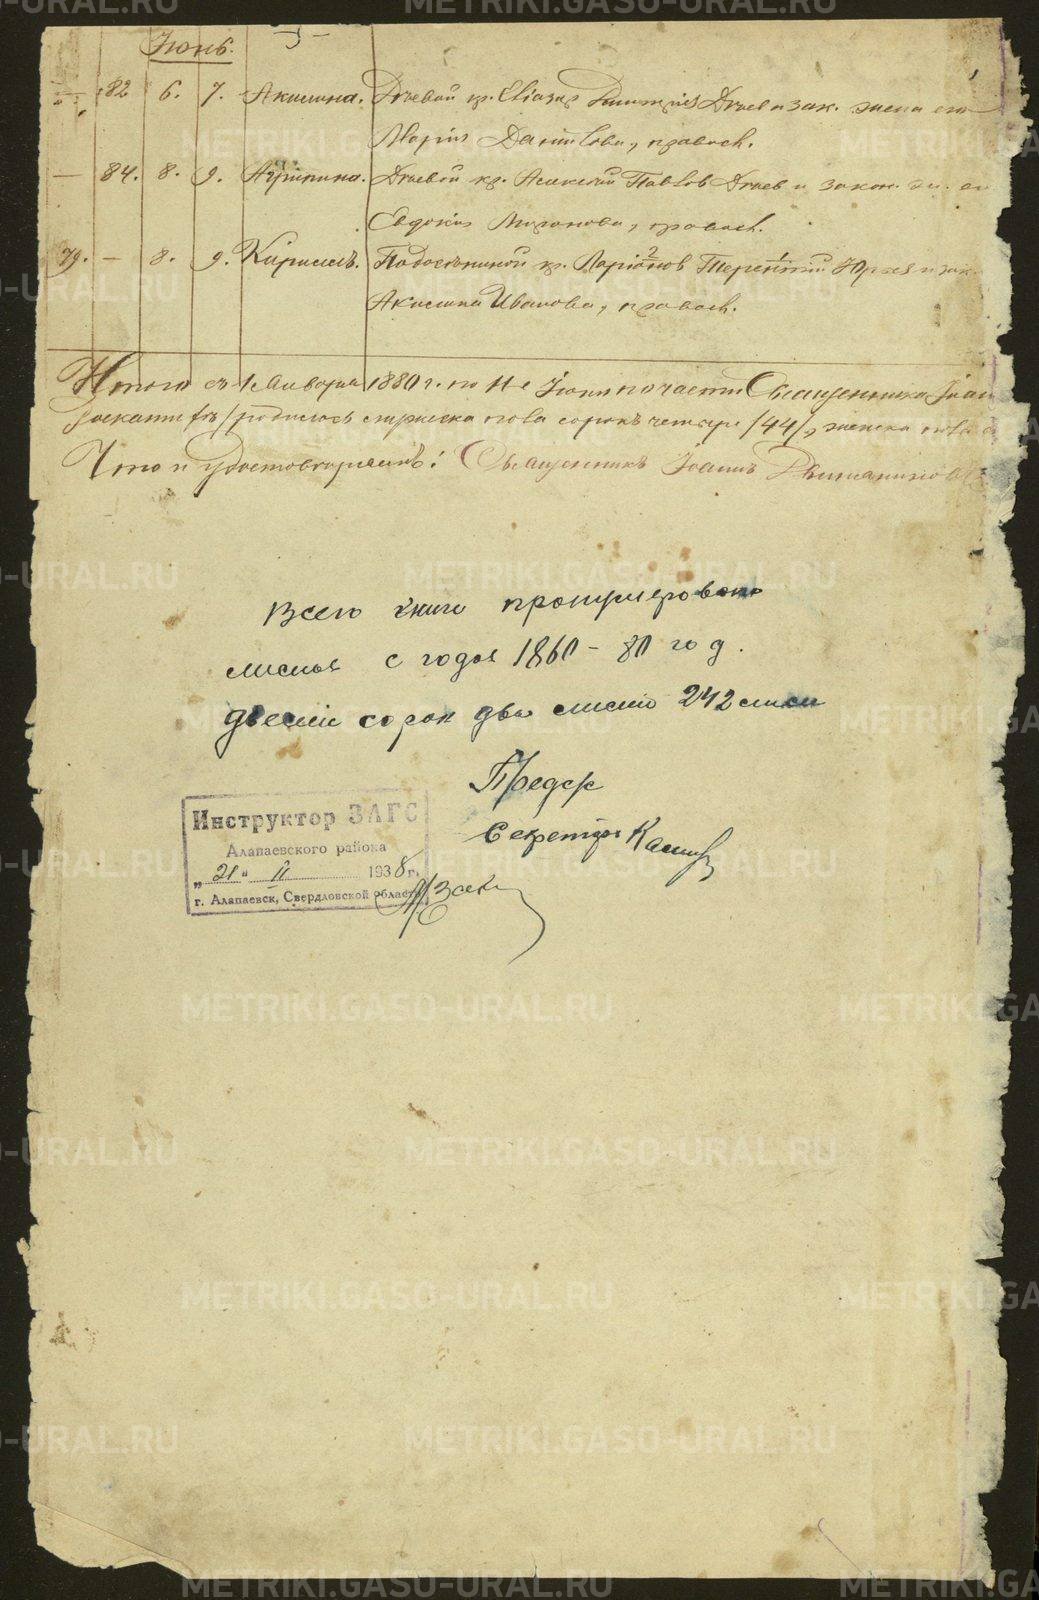 Іюнь.
— 82 6. 7. Акилина. кр. и зак. жена его
Марія Данилова, правосл.
— 84. 8. 9. Агрипина. кр. Алексѣй Павлов и закон. ж. его
Евдокія Миронова, правосл.
79. — 8. 9. Кирилъ. кр. Ларіонов Терентій Юрьев и зак.
Акилина Иванова, правосл.
Итого съ 1 Января 1880 г. по 11е Іюня по части Священника Іоан
родилось мужска пола сорокъ четыре /44/, женска пола
Что и удостовѣряемъ: Священникъ Іоаннъ
Всего книги пронумеровано
листов с года 1860-80 год.
двести сорок два листа 242 листа
Предср
Секретарь
Инструктор ЗАГС
Алапаевского района
„21" II 1938 г.
г. Алапаевск, Свердловской области
METRIKI.GASO-URAL.RU